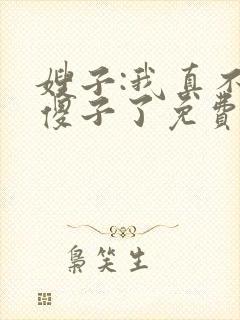 嫂子:我真不
傻子了免费
枭笑生